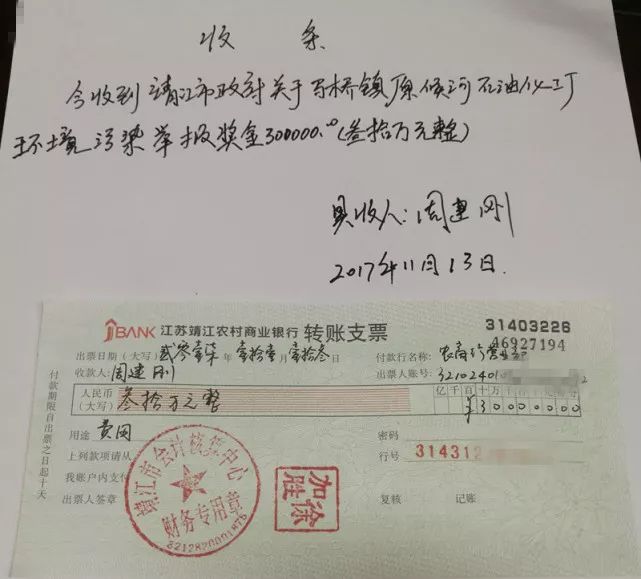 收 条
今收到靖江市政府关于马桥镇原候河石油化工厂
环境污染举报奖金300000.00(叁拾万元整)
具收人:周建刚
2017年11月13日.
BANK 江苏靖江农村商业银行 转账支票
31403226
46927194
出票日期(大写)贰零壹柒年 壹拾壹月 壹拾叁日
付款行名称:
收款人:周建刚
出票人账号:32102401 2
人民币(大写) 叁拾万元整
亿千百十万千百十元角分
¥30000000
用途
密码
上列款项请从
行号 314312
我账户内支付
出票人签章
复核 记账
付款期限自出票之日起十天
靖江市会计核算中心
财务专用章
3212820001876
加徐胜